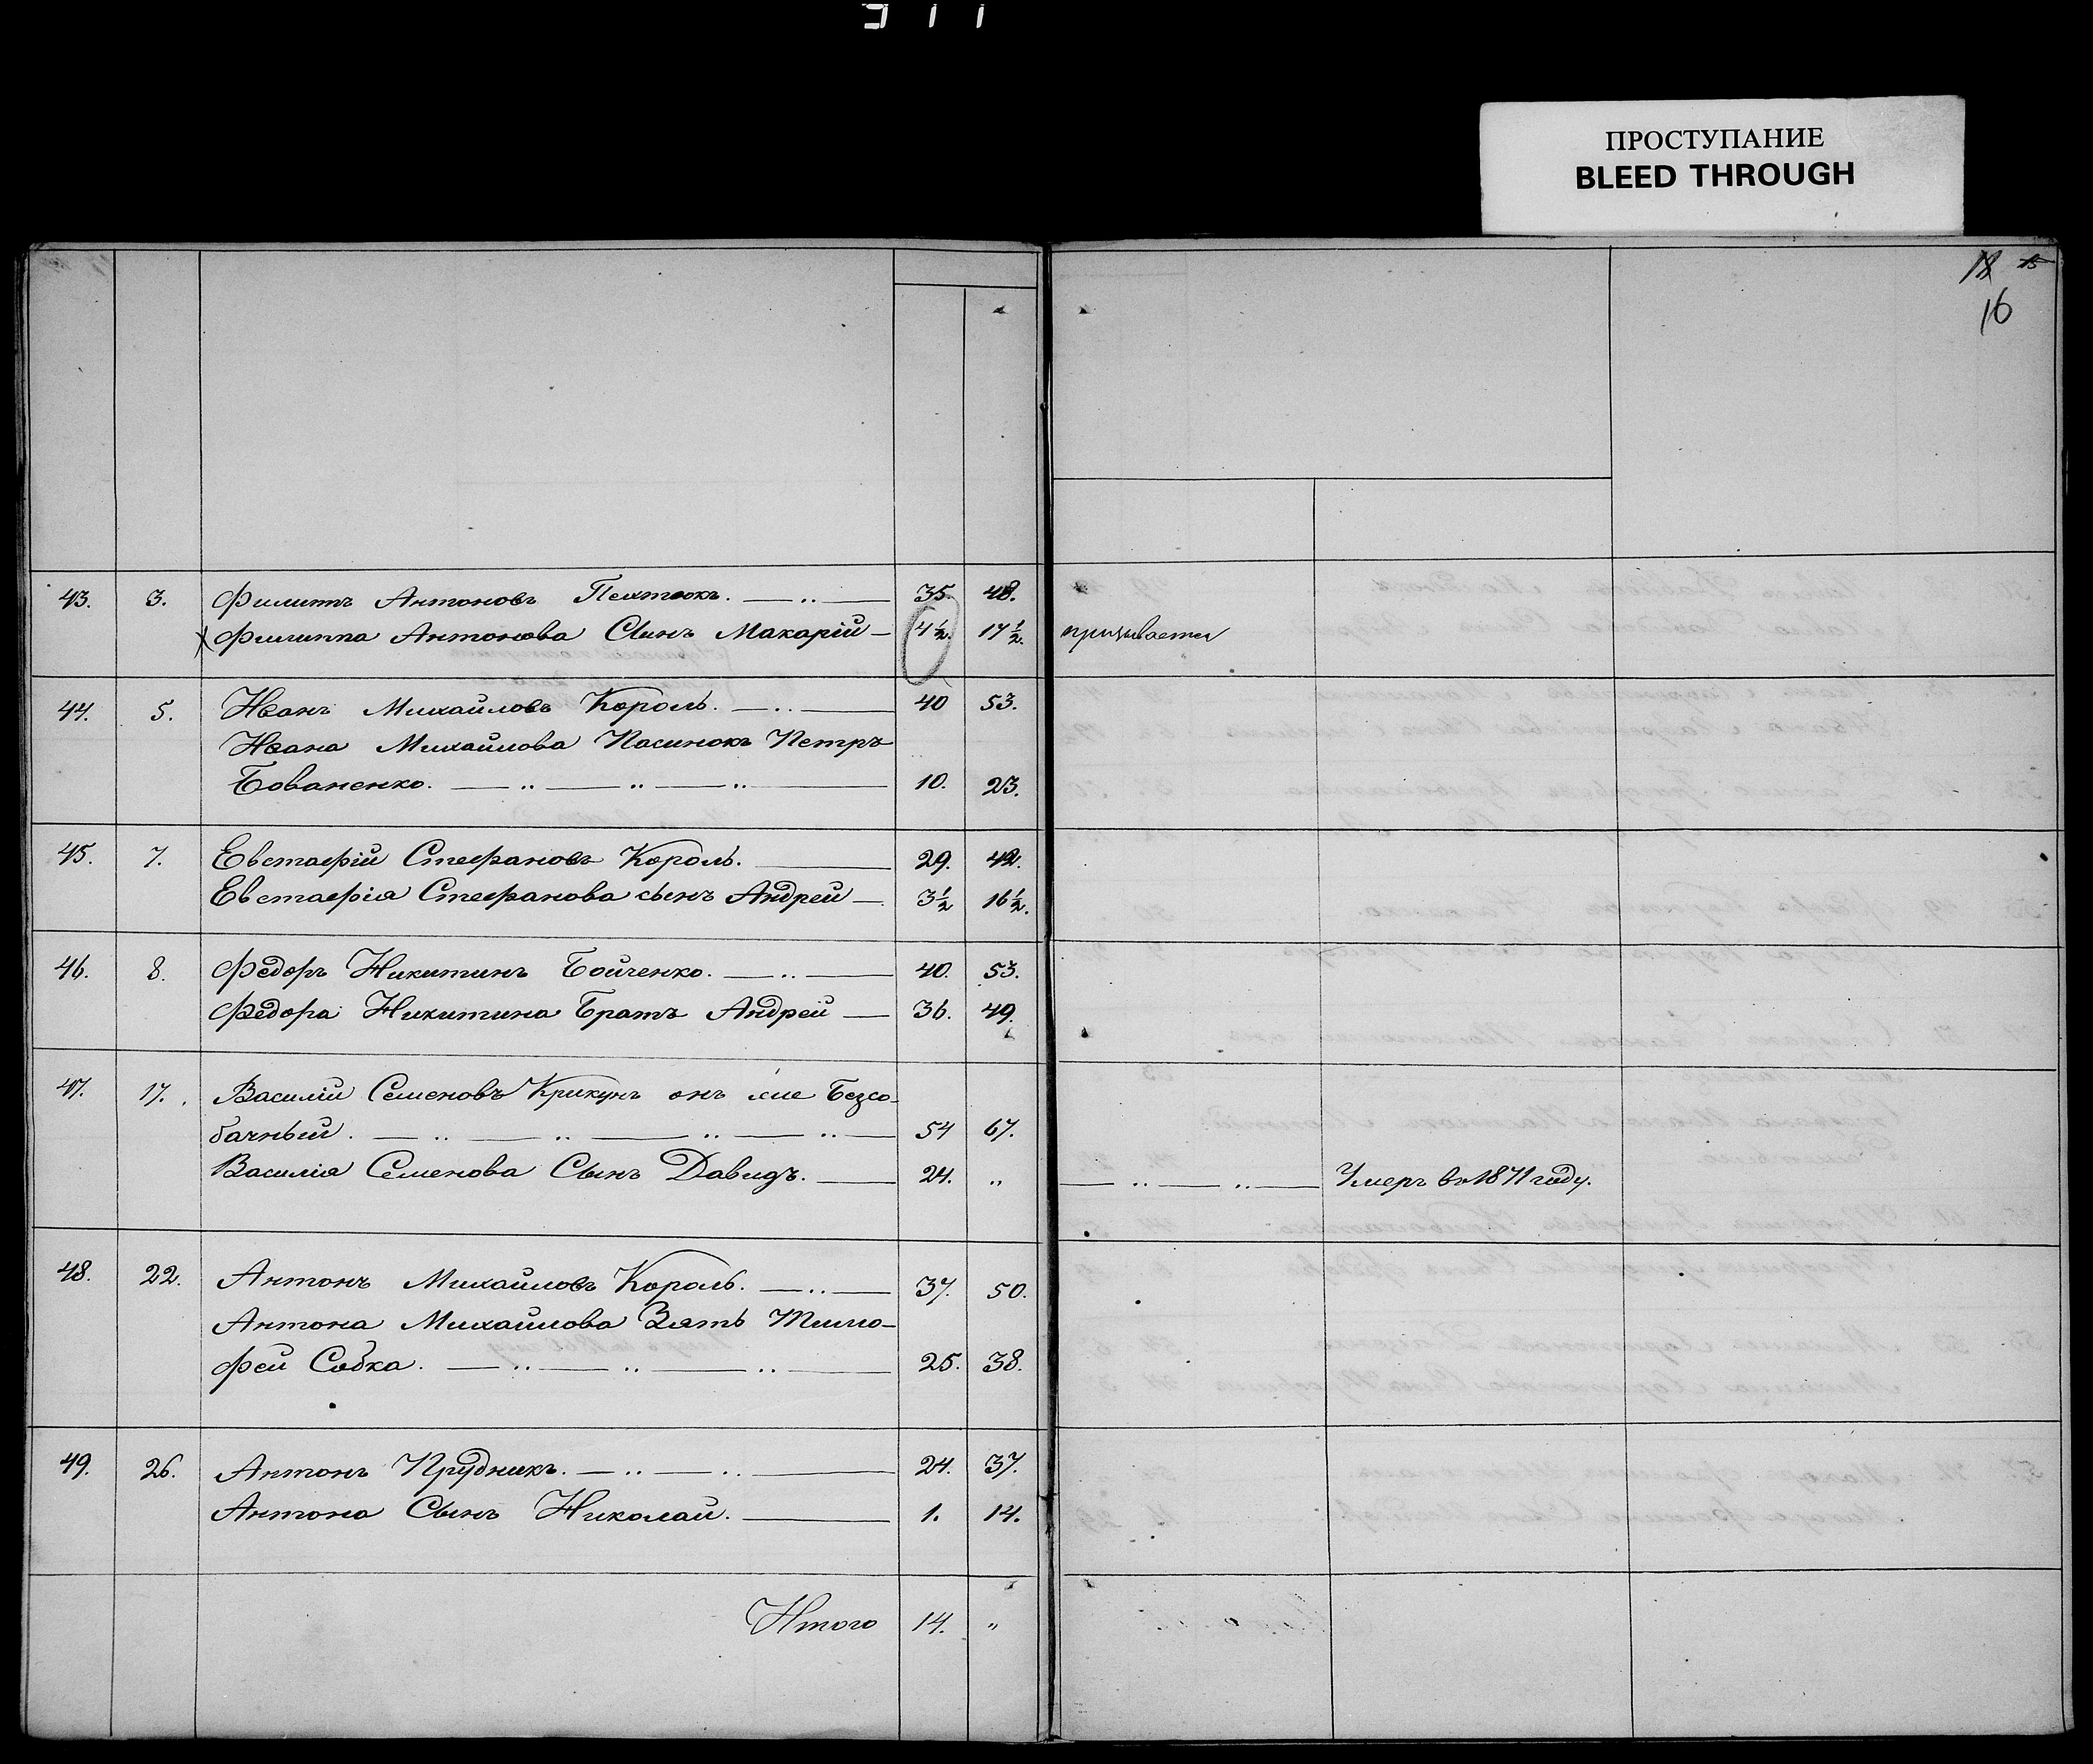 ПРОСТУПАНИЕ
BLEED THROUGH
16
43. 3. Филипъ Антоновъ Пехтюкъ. 35. 48.
Филиппа Антонова Сынъ Макарій 4½. 17½. призывается
44. 5. Иванъ Михайловъ Король. 40 53.
Ивана Михайлова Пасинокъ Петръ
Бованенко. 10. 23.
45. 7. Евстафій Стефановъ Король. 29. 42.
Евстафія Стефанова сынъ Андрей 3½ 16½.
46. 8. Федоръ Никитинъ Бойченко. 40. 53.
Федора Никитина Братъ Андрей 36. 49.
47. 17. Василій Семеновъ Крикунъ онъ же Безсо-
бачный. 54 67.
Василія Семенова Сынъ Давидъ. 24. „ Умеръ въ 1871 году.
48. 22. Антонъ Михайловъ Король. 37. 50.
Антона Михайлова Зять Тимо-
фей Собка. 25. 38.
49. 26. Антонъ Прудникъ. 24. 37.
Антона Сынъ Николай. 1. 14.
Итого 14. „